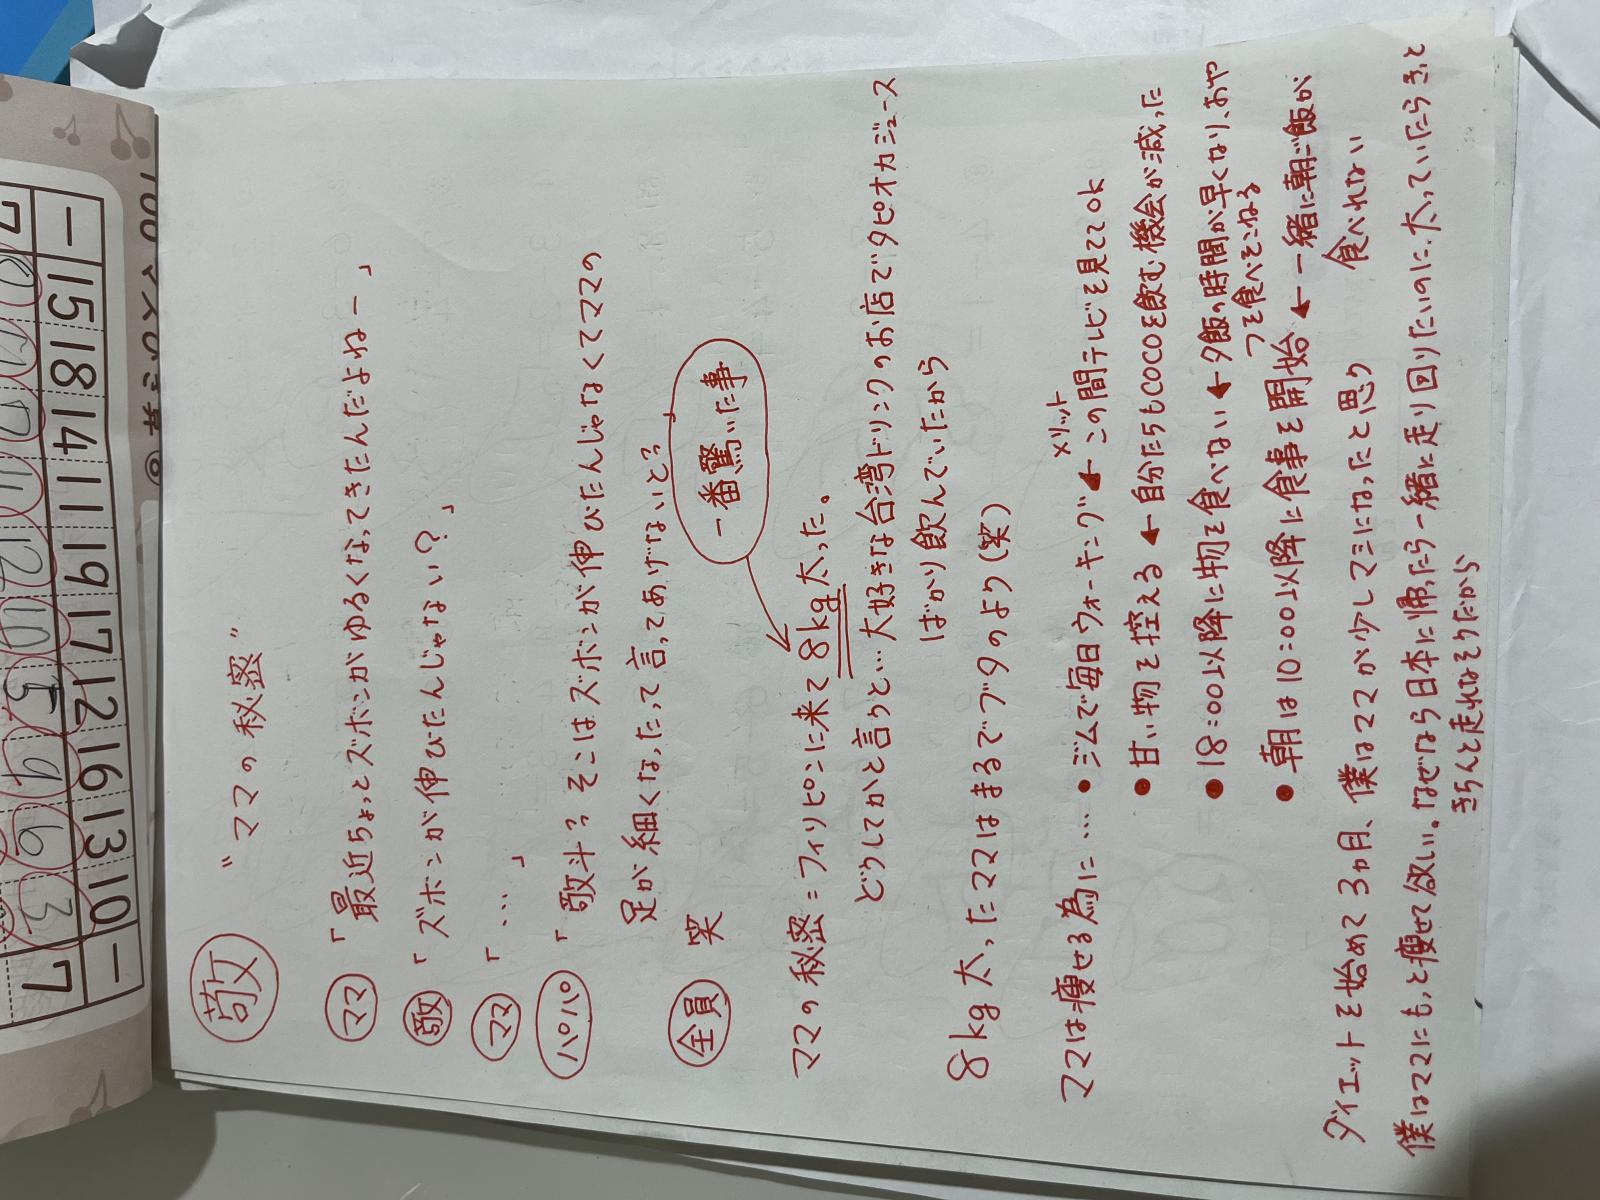 敬 "ママの秘密"
ママ 「最近ちょっとズボンがゆるくなってきたんだよねー」
敬 「ズボンが伸びたんじゃない？」
ママ 「…」
パパ 「敬斗？そこはズボンが伸びたんじゃなくてママの
足が細くなったって言ってあげないと？」
全員 笑
一番驚いた事
ママの秘密＝フィリピンに来て8kg太った。
どうしてかと言うと…大好きな台湾ドリンクのお店でタピオカジュース
ばかり飲んでいたから
8kg太ったママはまるでブタのより(笑)
ママは痩せる為に…
メリット
• ジムで毎日ウォーキング ← この間テレビを見ててOK
• 甘い物を控える ← 自分たちもCOCOを飲む機会が減った
• 18:00以降に物を食べない ← 夕飯の時間が早くなり、おや
つを食べそこねる
• 朝は10:00以降に食事を開始 ← 一緒に朝ご飯が
食べれない
ダイエットを始めて3ヵ月、僕はママが少しマシになったと思う
僕はママにもっと痩せて欲しい。なぜなら日本に帰ったら一緒に走り回りたいのに、太っていたらきっと
きちんと走れなそうだから
100マスひき算⑥
－ 15 18 14 11 19 17 12 16 13 10 －
7 8 11 7 4 12 10 5 9 6 3 7